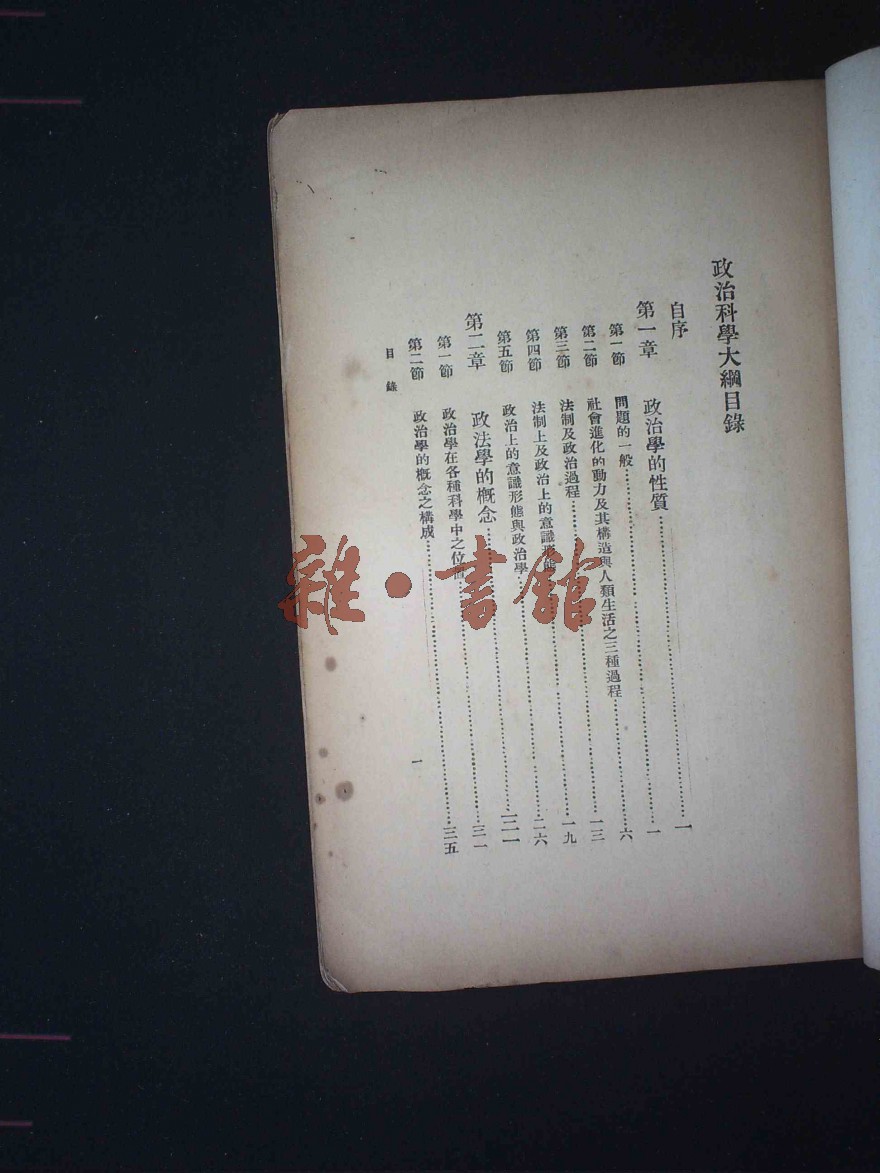 政治科學大綱目錄
自序
第一章 政治學的性質……一
第一節 問題的一般……一
第二節 社會進化的動力及其構造與人類生活之三種過程……六
第三節 法制及政治過程……一三
第四節 法制上及政治上的意識形態……一九
第五節 政治上的意識形態與政治學……二六
第二章 政法學的概念……三一
第一節 政治學在各種科學中之位置……三一
第二節 政治學的概念之構成……三五
目錄
一
雜·書館